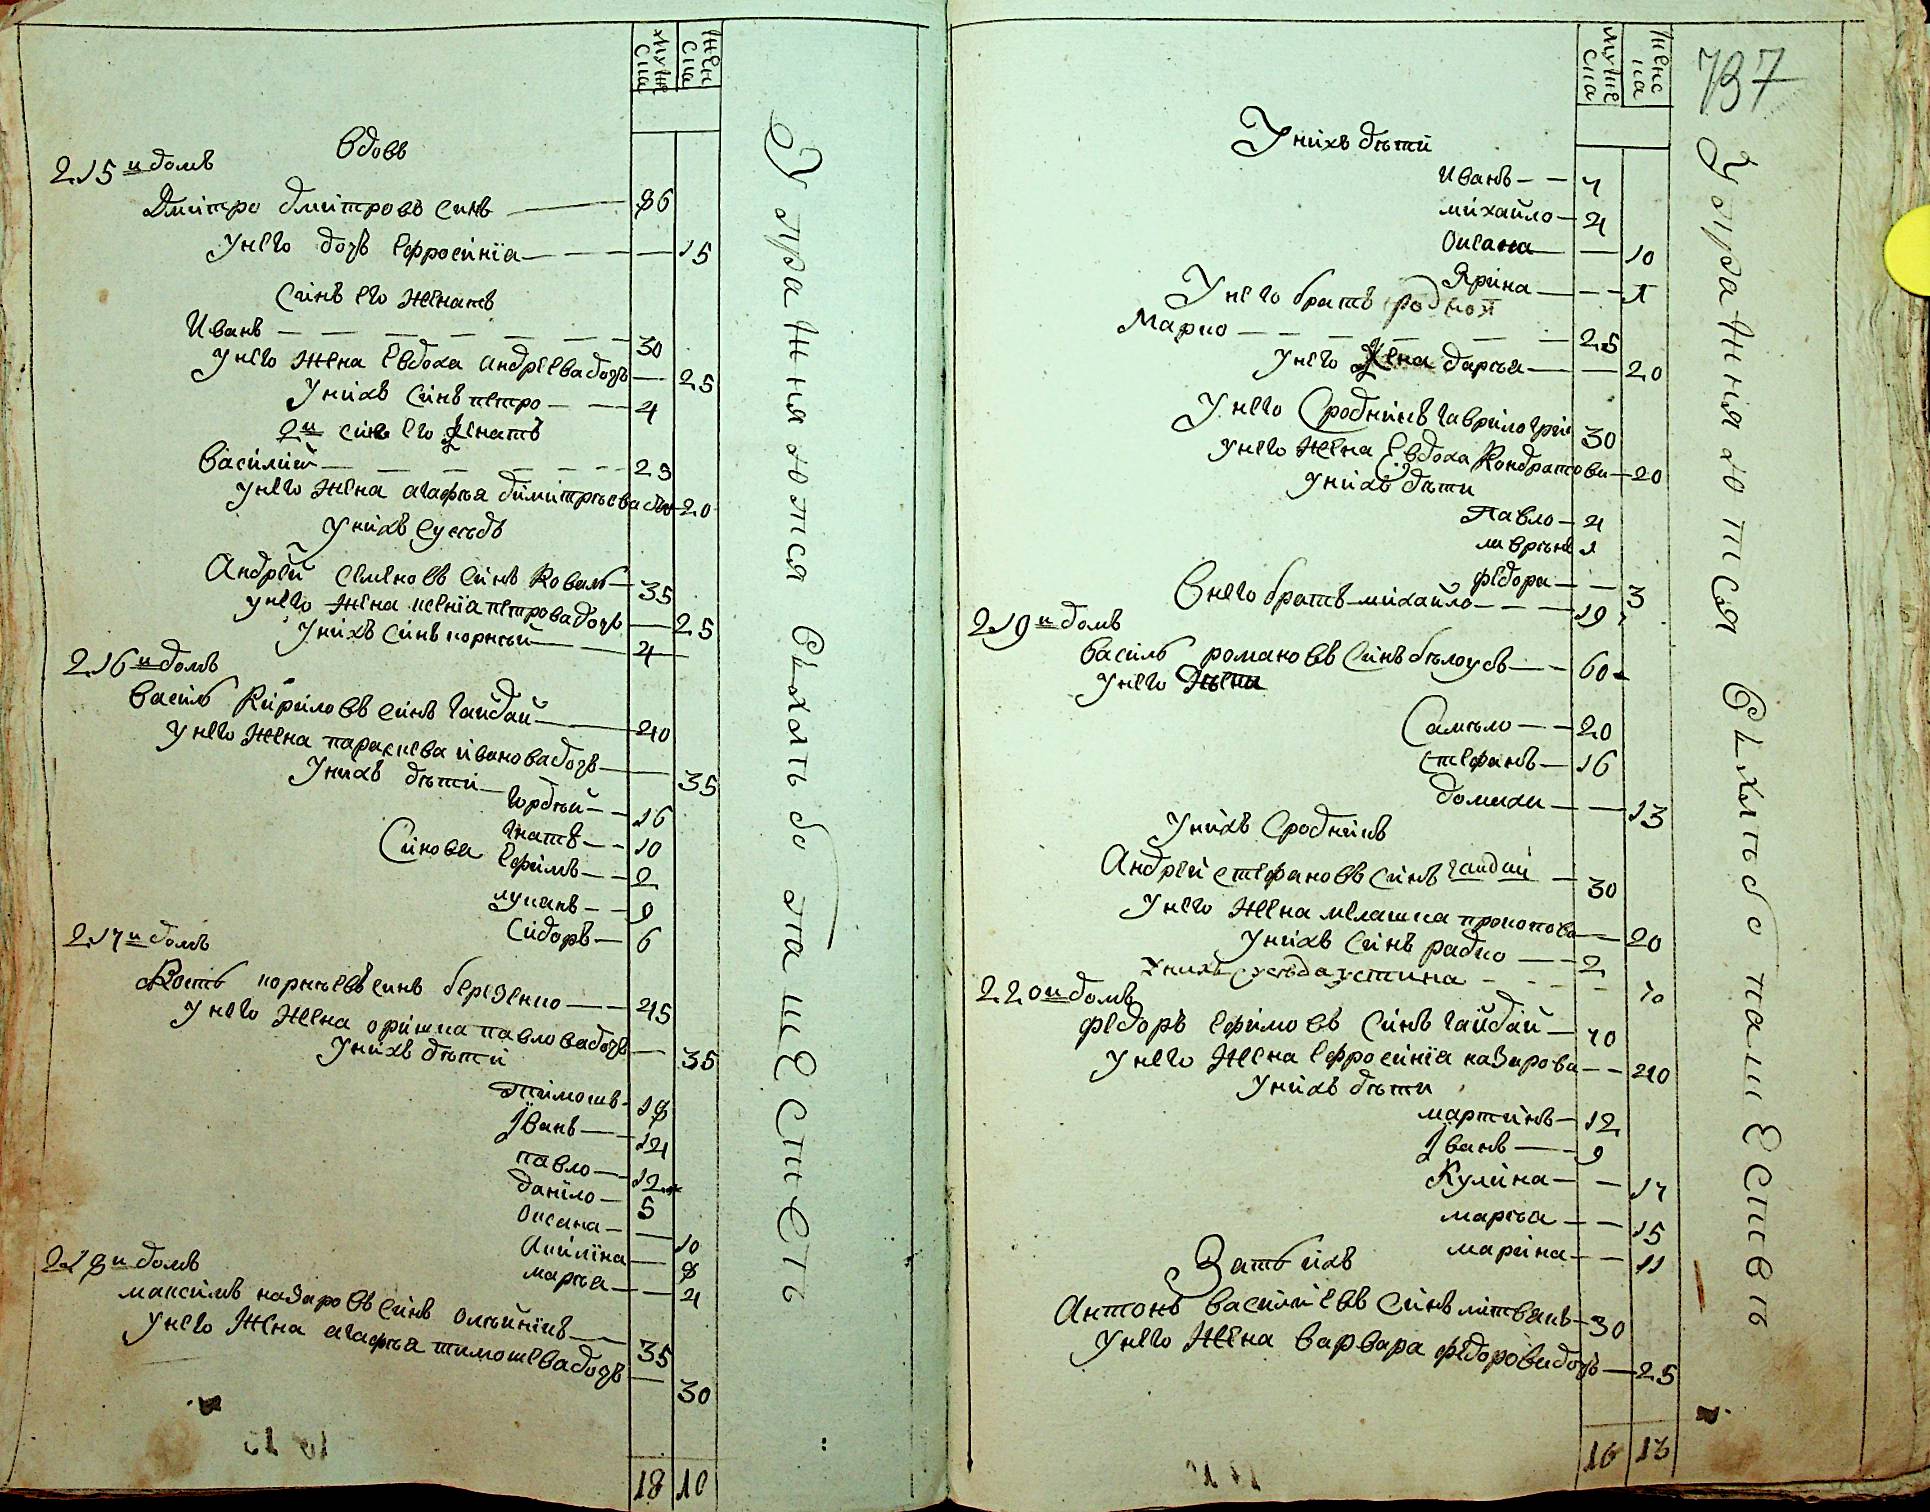 мужеска
женска
вдовъ
215 и домъ
Дмитро дмитровъ синъ — 86
у него дочь Ефросинїа — 15
Синъ его женатъ
Иванъ — 30
у него жена Евдоха андреева дочъ — 25
у нихъ синъ петро — 4
2и синъ его женатъ
Василий — 25
у него жена агафїа димитрїева дочъ — 20
у нихъ сусѣдъ
Андрей семеновъ синъ коваль — 35
у него жена ксенїа петрова дочъ — 25
у нихъ синъ корнѣй — 4
216 и домъ
Василь Кириловъ синъ гайдай — 40
у него жена параскева иванова дочъ — 35
у нихъ дѣти гордѣй — 16
Сінова
гнатъ — 10
Ефимъ — 2
лукянъ — 9
Сидоръ — 6
217 и домъ
корнѣевъ синъ березенко — 45
у него жена оришка павлова дочъ — 35
у нихъ дѣти
тимошъ — 18
Іванъ — 14
павло — 12
данїло — 5
Оксана — 10
Акилїна — 8
марѳа — 4
218 и домъ
максимъ назаровъ синъ олѣйникъ — 35
у него жена агафїа тимошева дочъ — 30
18 10
Упражняются вхлѣбопашестве
мужеска
женска
737
У нихъ дѣти
Иванъ — 7
михайло — 4
Оксана — 10
Ярина — 1
У него братъ родной
Марко — 25
у него жена дарїа — 20
У него сродникъ гаврило гри — 30
у него жена Евдоха Кондратова — 20
у нихъ дѣти
Павло — 4
лаврѣнъ 1
федора — 3
В него братъ михайло — 19
219 и домъ
Василь романовъ синъ бѣлоусъ — 60
у него
Самѣло — 20
стефанъ — 16
домаха — 13
у нихъ сродникъ
Андрей стефановъ синъ гайдай — 30
у него жена мелашка прокопова — 20
у нихъ синъ радко — 2
у нихъ сусѣда устина — 70
220 и домъ
федоръ Ефимовъ синъ гайдай — 70
у него жена Ефросинїа назарова — 40
у нихъ дѣти
мартинъ — 12
Іванъ — 9
Кулина — 17
марѳа — 15
марина — 11
Зать ихъ
Антонъ василиевъ синъ литвинъ — 30
у него жена варвара федорова дочъ — 25
16 13
Упражнияются вхлѣбопашестве